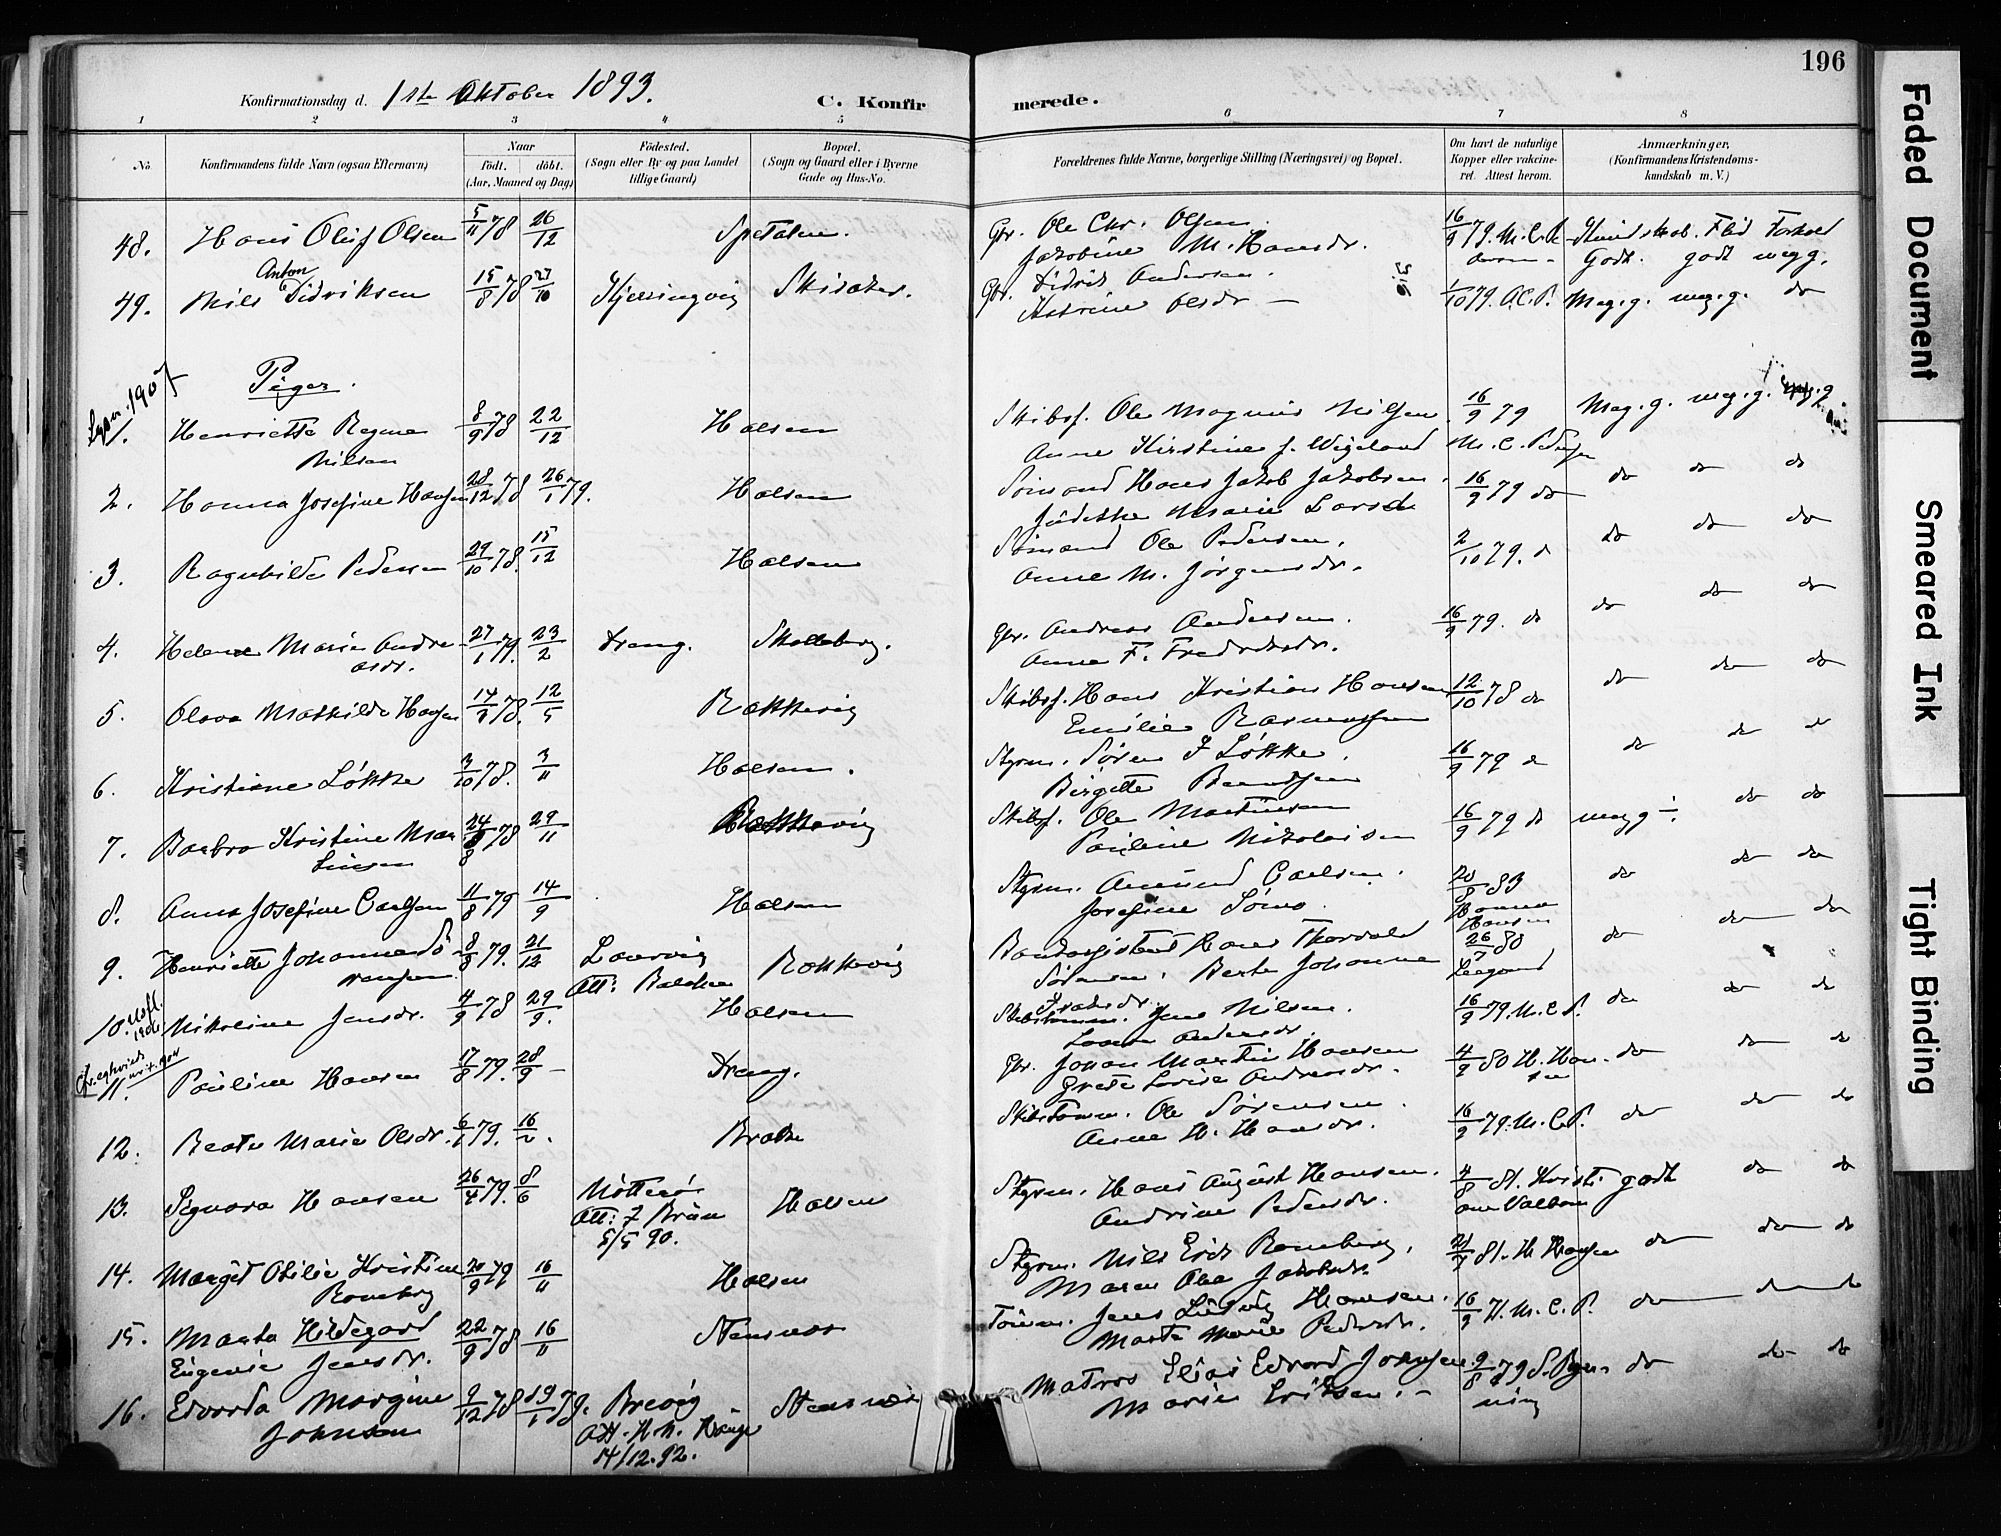 196
Konfirmationsdag d. 1ste Oktober 1893. C. Konfirmerede.
1 2 3 4 5 6 7 8
No. Konfirmandens fulde Navn (ogsaa Efternavn) Naar født. døbt. (Aar, Maaned og Dag) Fødested. (Sogn eller By og paa Landet tillige Gaard) Bopæl. (Sogn og Gaard eller i Byerne Gade og Hus-No. Forældrenes fulde Navne, borgerlige Stilling (Næringsvei) og Bopæl. Om havt de naturlige Kopper eller vakcineret. Attest herom. Anmærkninger, (Konfirmandens Kristendomskundskab m. V.)
48. Hans Oluf Olsen 5/11 78 26/12 Spetalen. Gbr. Ole Chr. Olsen 16/9 79. M.C.P. Kundskab. Flid Forhold
Jakobine M. Hansdr. Godt. godt meg g.
49. Nils Anton Didriksen 15/8 78 27/10 Kjerringvig Skisaker. Gbr. Didrik Andersen. 1/10 79. A.C.P. Meg. g. meg. g. do
Katrine Olsdr —
Piger.
1. Henriette Regine 8/9 78 22/12 Halsen Skibsf. Ole Magnus Nilsen 16/9 79 Meg. g. meg. g. meg. g.
Nilsen Anne Kirstine f. Wigeland M. C. Peders
2. Hanna Josefine Hansen 28/12 78 26/1 79. Halsen Sømand Hans Jakob Jakobsen. 16/9 79 do do do do
Marie Larsd
3. Ragnhilde Pedersen 29/10 78. 15/12 Halsen Sømand Ole Pedersen. 2/10 79. d do do do
Anne M. Jørgensdr.
4. Helene Marie Andreasdr. 27/1 79. 23/2 Dreng. Skalleberg. Gbr. Andreas Andersen. 16/9 79. do do do do
Anne F. Fredriksdr.
5. Olava Mathilde Hansen 14/3 78. 12/5 Rakkevig Skibsf. Hans Kristian Hansen 12/10 78 do do do do
Emilie Rasmussen
6. Kristiane Løkke 3/10 78. 3/11 Halsen. Styrm. Søren J Løkke. 16/9 79 do do do do
Birgitte Berntsen
7. Barbro Kristine Mar 24/8 78 29/11 Rakkevig Skibsf. Ole Martinsen 16/9 79 do meg g ÷ do do
tinsen Pauline Nikolaisen
8. Anna Josefine Carlsen 11/8 79 14/9 Halsen Styrm. Amund Carlsen. 20/8 83 do do do
Josefine Hanna Hansen
9. Henriette Johanne Sø- 8/8 79. 21/12 Laurvig Rakkevig Hans Thorvald 26/7 80 do do do
rensen Att: Sørensen. Berte Johanne
10. Nikoline Jensdr. 4/9 78 29/9. Halsen Jens Nilsen. 16/9 79. M.C.P. do do do
11. Pauline Hansen 17/8 79. 28/9 — Dreng. Gbr. Johan Martin Hansen 4/9 80 H. Han- do do do
Grete Lovise Andreasdr. sen
12. Beate Marie Olsdr. 6/1 79. 16/2. Bratte Skibstømm. Ole Sørensen. 16/9 79. M.C.P. do do do
Anne H. Hansdr.
13. Signora Hansen 26/4 79. 8/6 Nøtterø Halsen Styrm. Hans August Hansen. 4/8 81. Kristi godt do do
Att: J Bruun Andrine Pedersdr.
5/5 90.
14. Margit Otilie Kristine 20/9 79 16/11 Halsen Styrm. Nils Erik Romberg. 81. H Hansen do do do
Romberg Maren Olea Jakobsdr.
15. Marta Hildegard 22/9 78 16/11 Stensnæs Tømm. Jens Ludvig Hansen. 16/9 M.C.P. do do do
Eugenie Jensdr. Marte Marie Pedersdr.
16. Edvarda Margine 9/12 78 19/1 79. Brevig Stensnæs Matros Elias Edvard Johnsen 9/8 79 do do do
Johnsen Att. 14/12.92. Marie Eriksen. —
Faded Document
Smeared Ink
Tight Binding